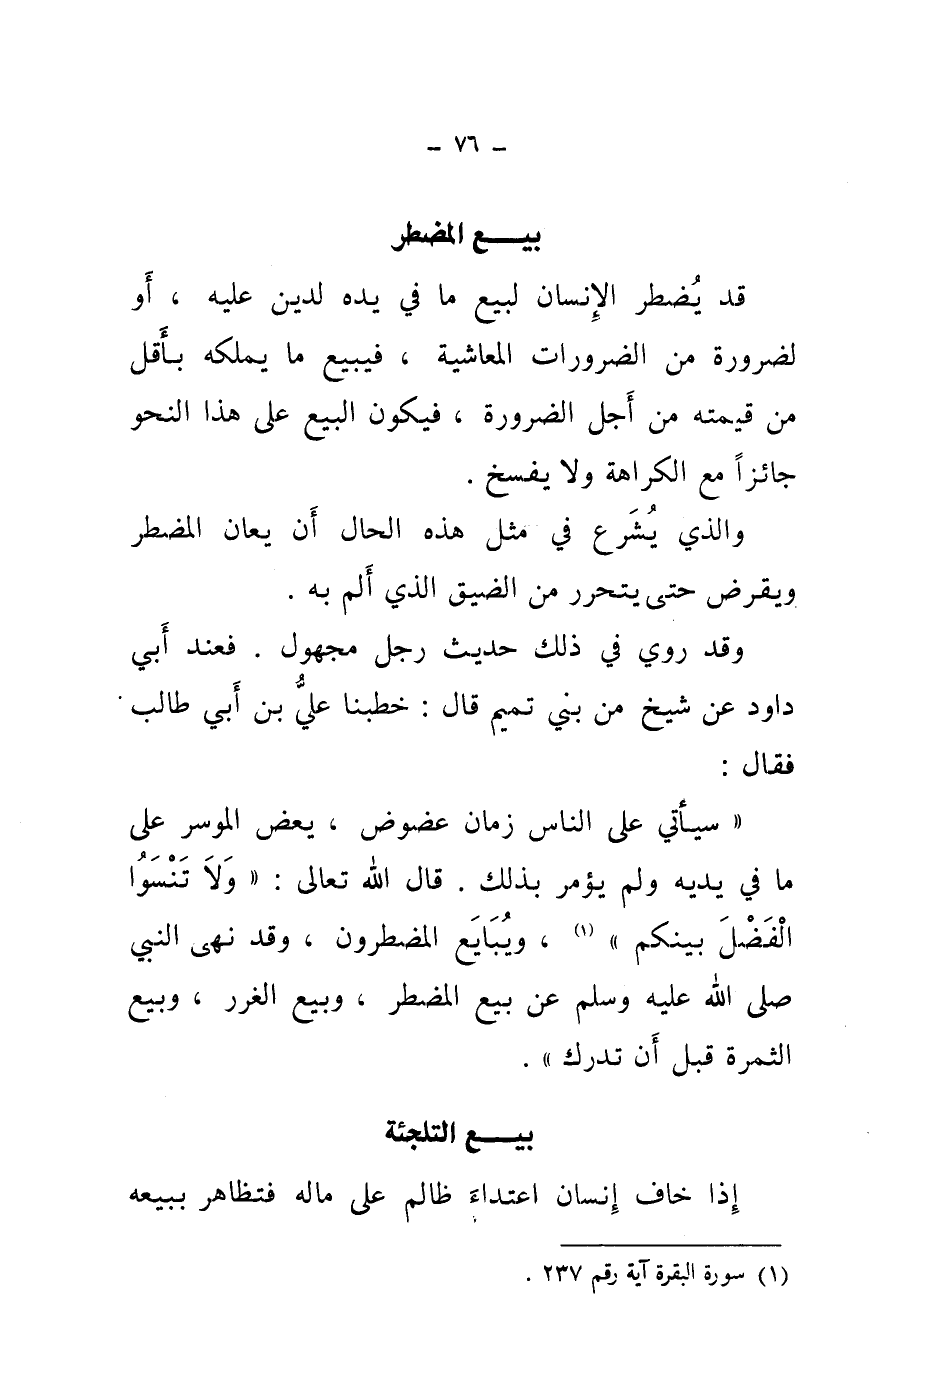 - ٧٦ -
بيـــع المضطر
قد يُضطر الإِنسان لبيع ما في يده لدين عليه ، أَو
لضرورة من الضرورات المعاشية ، فيبيع ما يملكه بأَقل
من قيمته من أَجل الضرورة ، فيكون البيع على هذا النحو
جائزاً مع الكراهة ولا يفسخ .
والذي يُشَرع في مثل هذه الحال أَن يعان المضطر
ويقرض حتى يتحرر من الضيق الذي أَلم به .
وقد روي في ذلك حديث رجل مجهول . فعند أَبي
داود عن شيخ من بني تميم قال : خطبنا عليُّ بن أَبي طالب
فقال :
« سيأتي على الناس زمان عضوض ، يعض الموسر على
ما في يديه ولم يؤمر بذلك . قال الله تعالى : « وَلَا تَنْسَوُا
الْفَضْلَ بينكم » (١) ، ويُبَايَع المضطرون ، وقد نهى النبي
صلى الله عليه وسلم عن بيع المضطر ، وبيع الغرر ، وبيع
الثمرة قبل أَن تدرك » .
بيـــع التلجئة
إِذا خاف إِنسان اعتداءَ ظالم على ماله فتظاهر ببيعه
(١) سورة البقرة آية رقم ٢٣٧ .